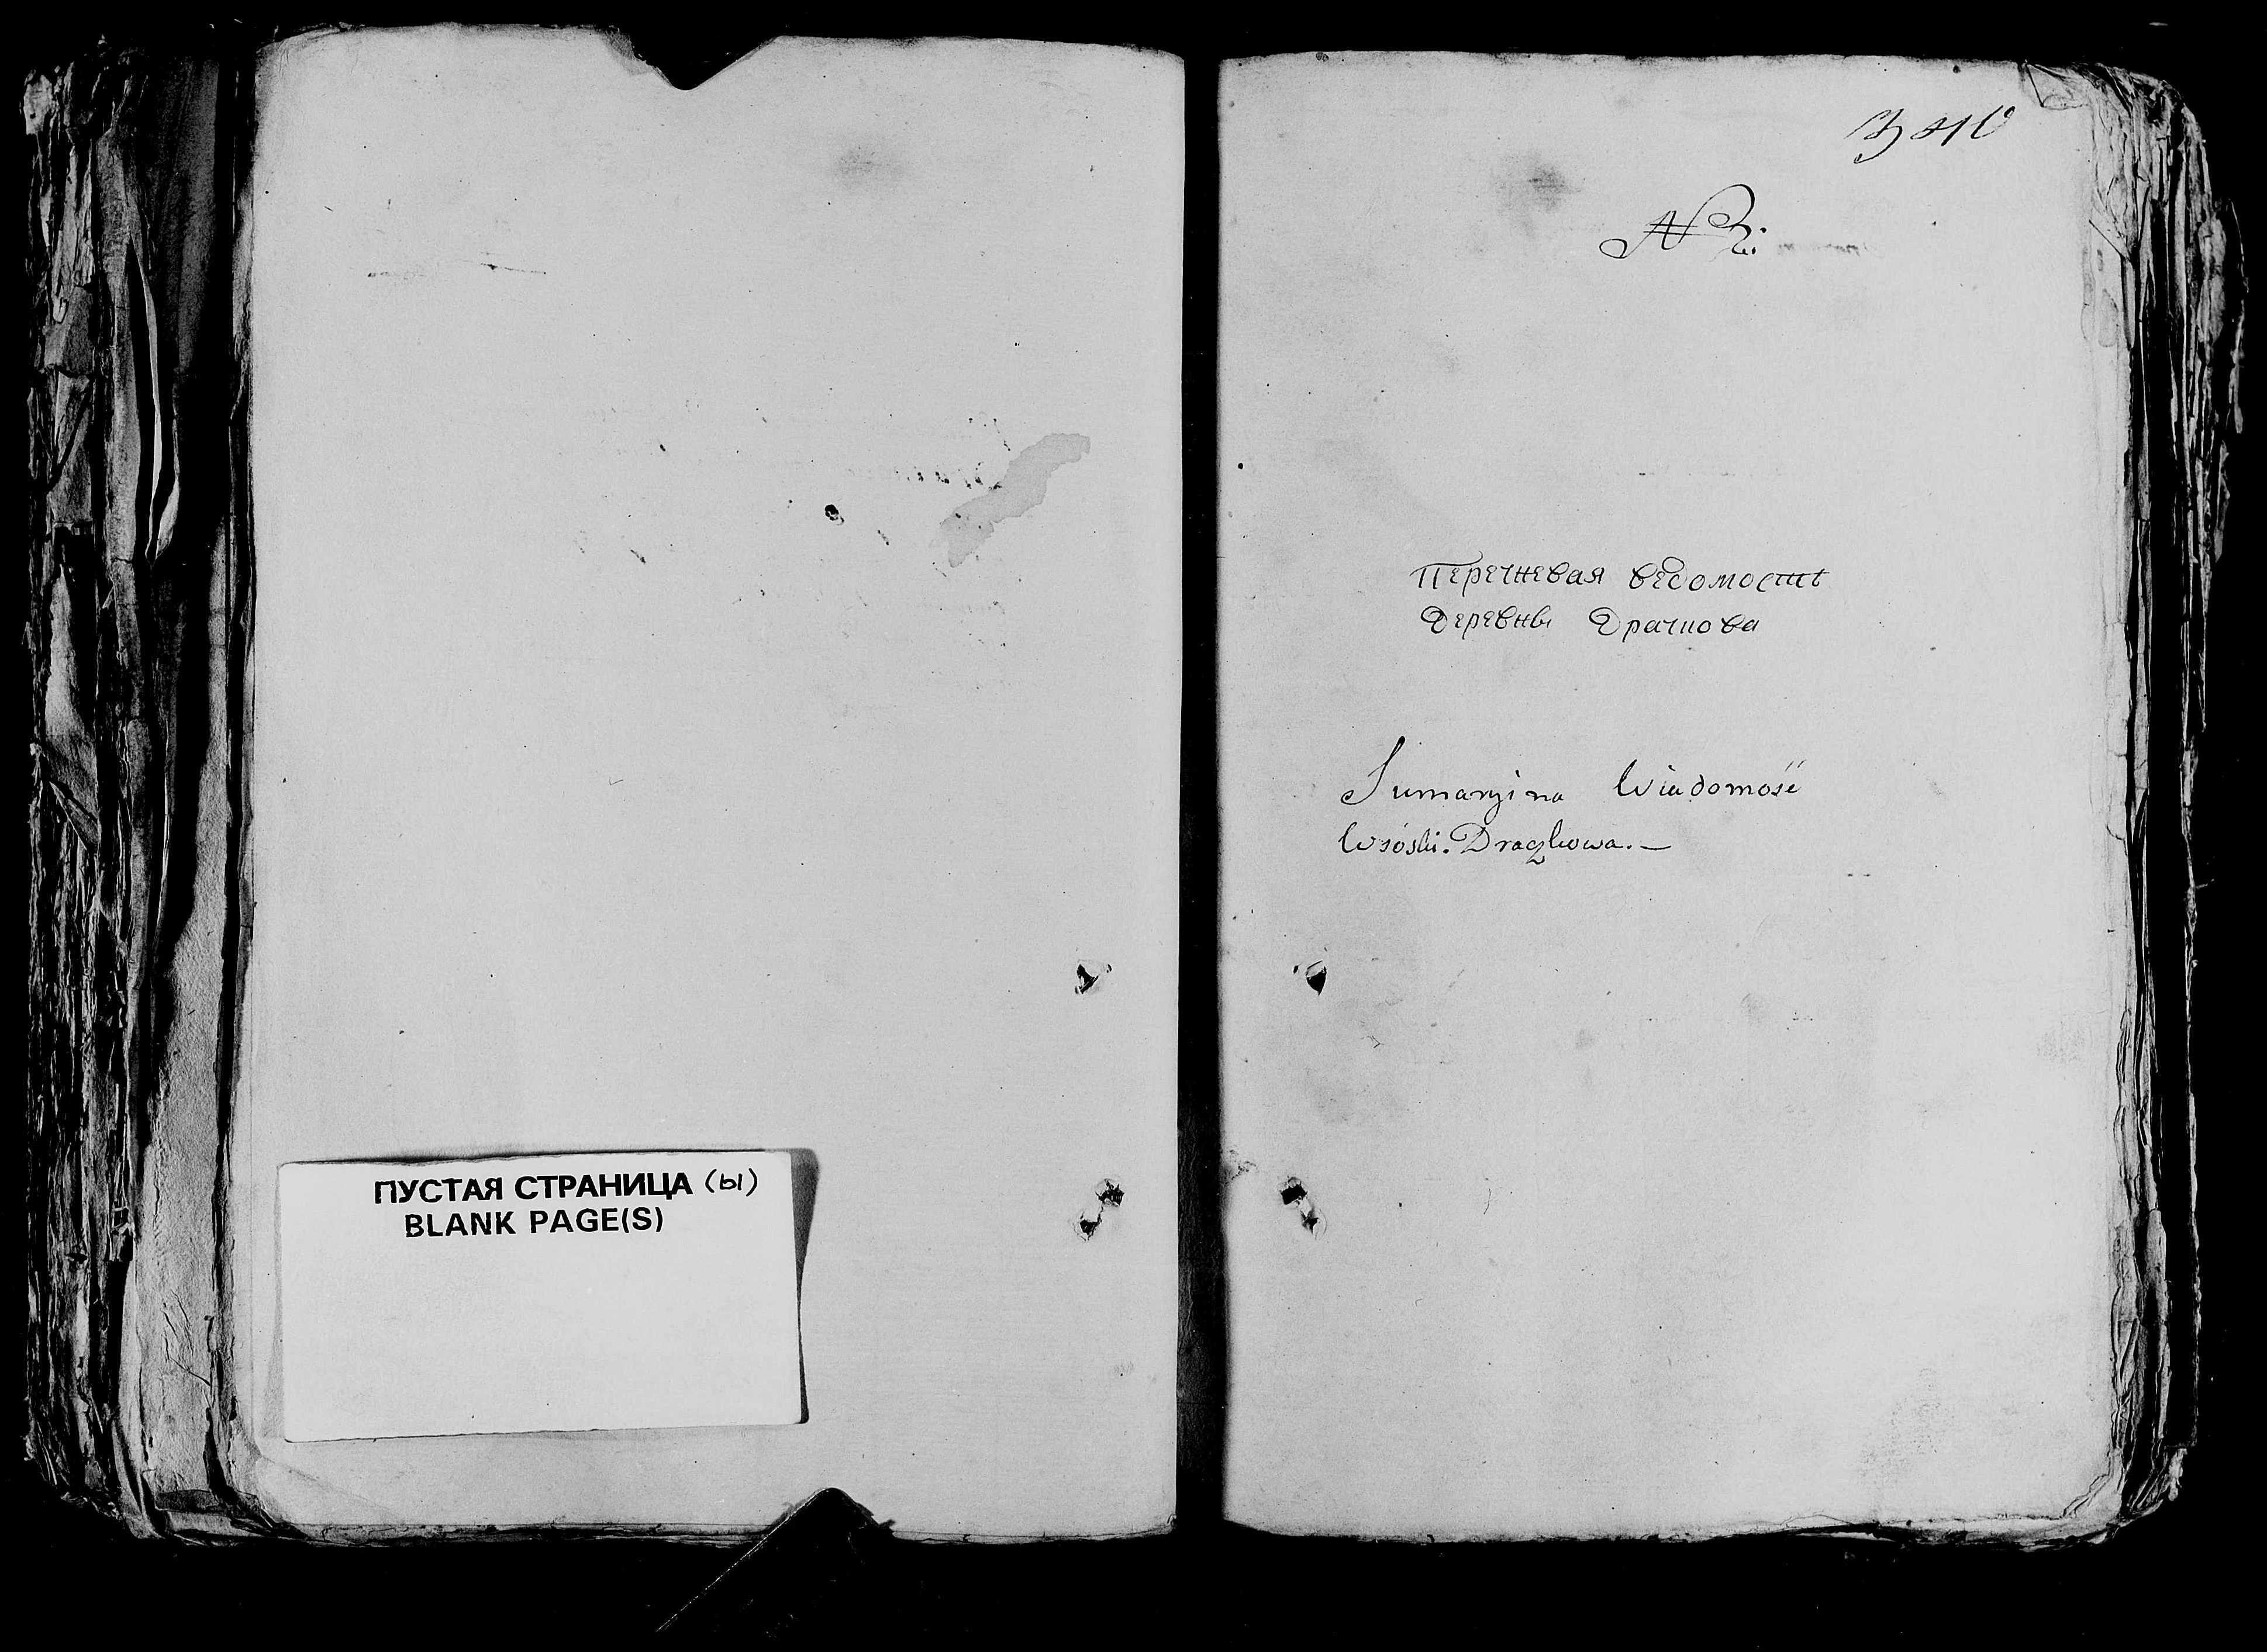 ПУСТАЯ СТРАНИЦА (ы)
BLANK PAGE(S)
N 2:
Перечневая ведомость
Деревны Драчкова
Sumaryina Wiadomość
Wioski. Draczkowa. —